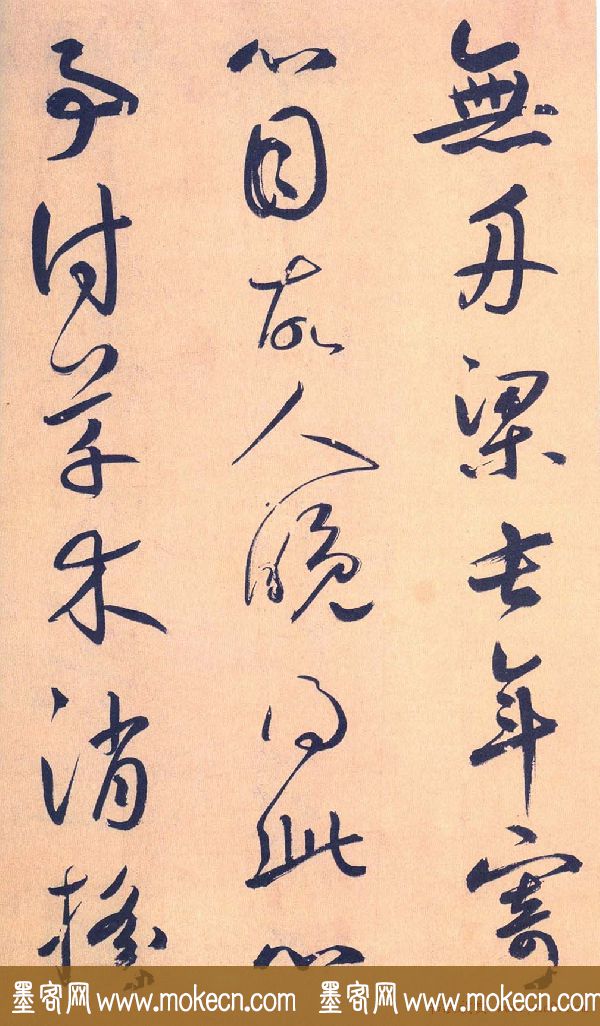 無舟梁去年寄
心目故人得此心
付草木消搖
墨客网 www.mokecn.com 墨客网 www.mokecn.com